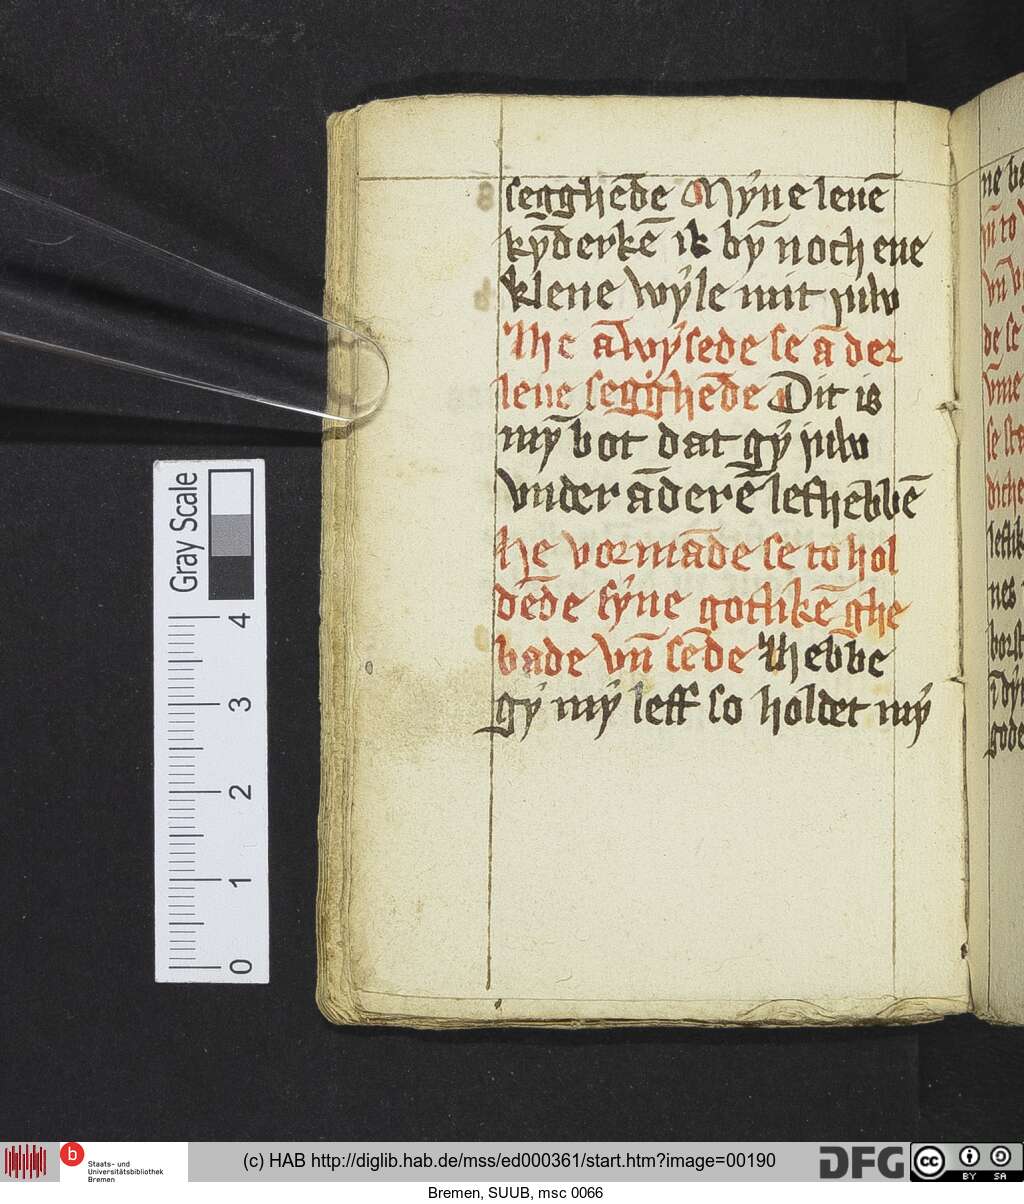 segghēde Mẏne leuē
kȳderkē ik bȳ noch ene
klene wẏle mit juw
He āwẏsede se ā der
leue segghēde Dit is
mȳ bot dat gẏ juw
vnder āderē lefhebbē
He vormāde se to hol
dēde sẏne gotlikē ghe
bade vn̄ sēde Hebbe
gẏ mẏ leff so holdet mẏ
ne
vn̄ to
vn̄
de se
vn̄ie
se
nes
gode
Gray Scale
4
3
2
1
0
b
Staats- und
Universitätsbibliothek
Bremen
(c) HAB http://diglib.hab.de/mss/ed000361/start.htm?image=00190
DFG
cc
BY SA
Bremen, SUUB, msc 0066